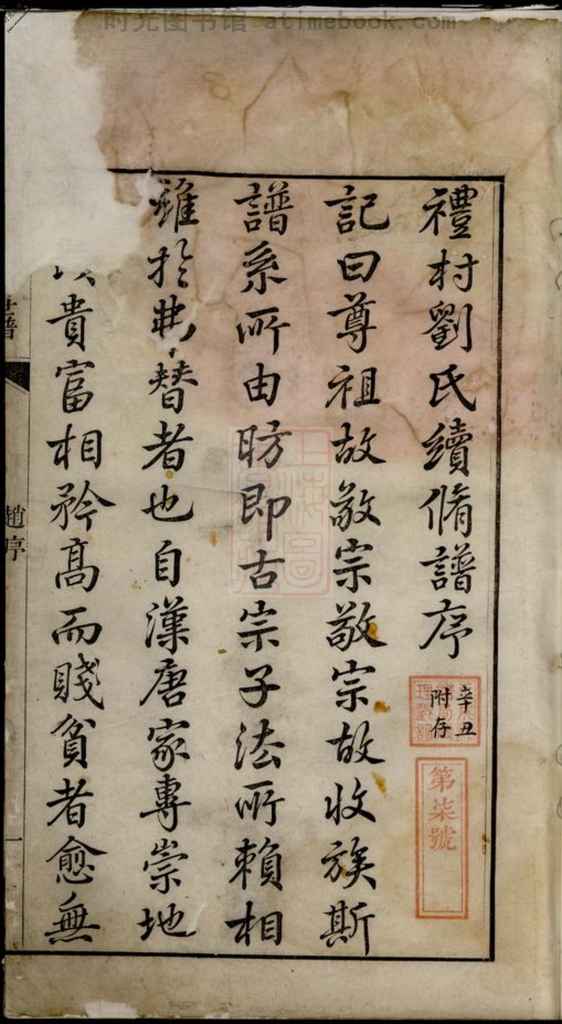 时光图书馆 atimebook.com
禮村劉氏續脩譜序
辛丑
附存
第柒號
記曰尊祖故敬宗敬宗故收族斯
譜系所由昉即古宗子法所賴相
維於替者也自漢唐家專崇地
貴富相矜高而賤貧者愈無
譜
趙序
一